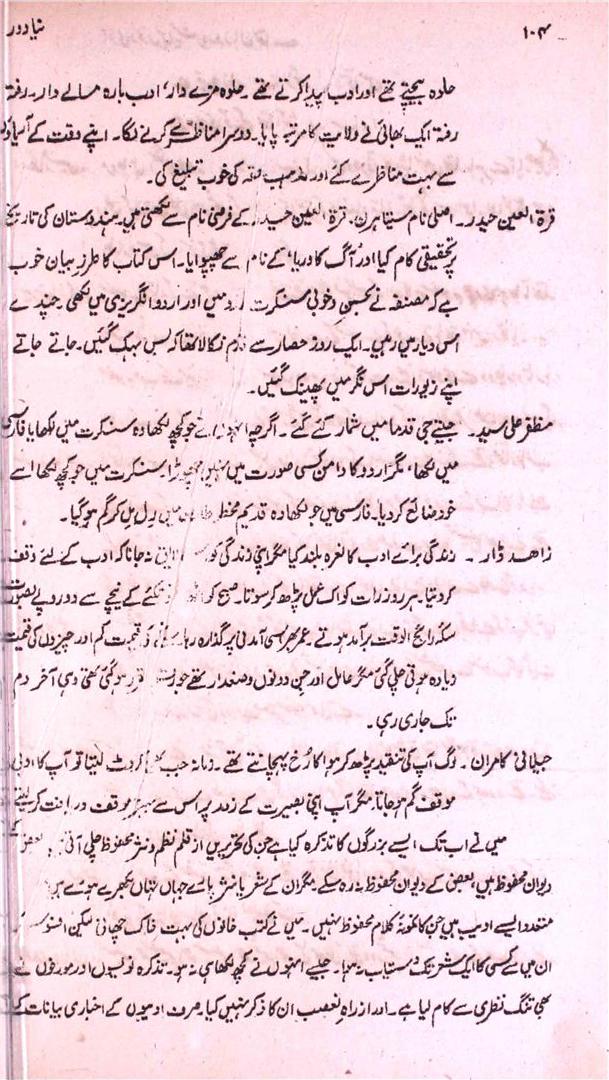 ۱۰۴
نیا دور
حلوہ بیچتے تھے اور ادب پیدا کرتے تھے ۔ حلوہ مزے دار، ادب بارہ مسالے دار ۔ رفتہ
رفتہ ایک بھائی نے ولایت کا مرتبہ پایا۔ دوسرا مناظرے کرنے لگا۔ اپنے وقت کے
سے بہت مناظرے کئے اور مذہب حقہ کی خوب تبلیغ کی۔
قرۃ العین حیدر۔ اصلی نام سیتا ہرن، قرۃ العین حیدر کے فرضی نام سے لکھتی تھیں۔ ہندوستان کی تاریخ
پر تحقیقی کام کیا اور ’آگ کا دریا‘ کے نام سے چھپوایا۔ اس کتاب کا طرز بیان خوب
ہے کہ مصنفہ نے بحسن و خوبی سنسکرت اردو میں اور اردو انگریزی میں لکھی ۔ چندے
اس دیار میں رہیں۔ ایک روز حصار سے قدم نکالا تھا کہ بس بہک گئیں۔ جاتے جاتے
اپنے زیورات اس نگر میں پھینک گئیں۔
مظفر علی سید ۔ جیتے جی قدما میں شمار کئے گئے ۔ اگرچہ انہوں نے جو کچھ لکھا وہ سنسکرت میں لکھا یا فارسی
میں لکھا، مگر اردو کا دامن کسی صورت میں نہیں چھوڑا۔ سنسکرت میں جو کچھ لکھا اسے
خود ضائع کر دیا۔ فارسی میں جو لکھا وہ قدیم میں رل مل کر گم ہو گیا۔
زاھد ڈار ۔ زندگی برائے ادب کا نعرہ بلند کیا مگر اپنی زندگی کو نہ جانا کہ ادب کے لئے وقف
کر دیتا۔ ہر روز رات کو اک عمل پڑھ کر سوتا۔ صبح کو تکئے کے نیچے سے دو روپے بصورت
سکہ رائج الوقت برآمد ہوتے ۔ عمر بھر اسی آمدنی پر گذارہ رہا۔ کی قیمت کم اور چیزوں کی قیمت
زیادہ ہوتی چلی گئی مگر عامل اور جن دونوں وضعدار تھے جو مقرر ہو گئی تھی وہی آخر دم
تک جاری رہی۔
جیلانی کامران ۔ لوگ آپ کی تنقید پڑھ کر ہوا کا رُخ پہچانتے تھے ۔ زمانہ جب کروٹ لیتا تو آپ کا ادبی
موقف گم ہو جاتا مگر آپ اپنی بصیرت کے زور پر اس سے بہتر موقف دریافت کر لیتے
میں نے اب تک ایسے بزرگوں کا تذکرہ کیا ہے جن کی تحریریں از قلم نظم و نثر محفوظ چلی آتی ہیں بعض کے
دیوان محفوظ ہیں، بعض کے دیوان محفوظ نہ رہ سکے مگر ان کے شعر یا نثر پارے جہاں تہاں بکھرے ہوئے ہیں
متعدد ایسے ادیب ہیں جن کا نمونۂ کلام محفوظ نہیں ۔ میں نے کتب خانوں کی بہت خاک چھانی لیکن افسوس کہ
ان میں سے کسی کا ایک شعر تک دستیاب نہ ہوا۔ جیسے انہوں نے کچھ لکھا ہی نہ ہو۔ تذکرہ نویسوں اور مورخوں نے
بھی تنگ نظری سے کام لیا ہے ۔ اور از راہِ تعصب ان کا ذکر نہیں کیا۔ صرف ادیبوں کے اخباری بیانات کے